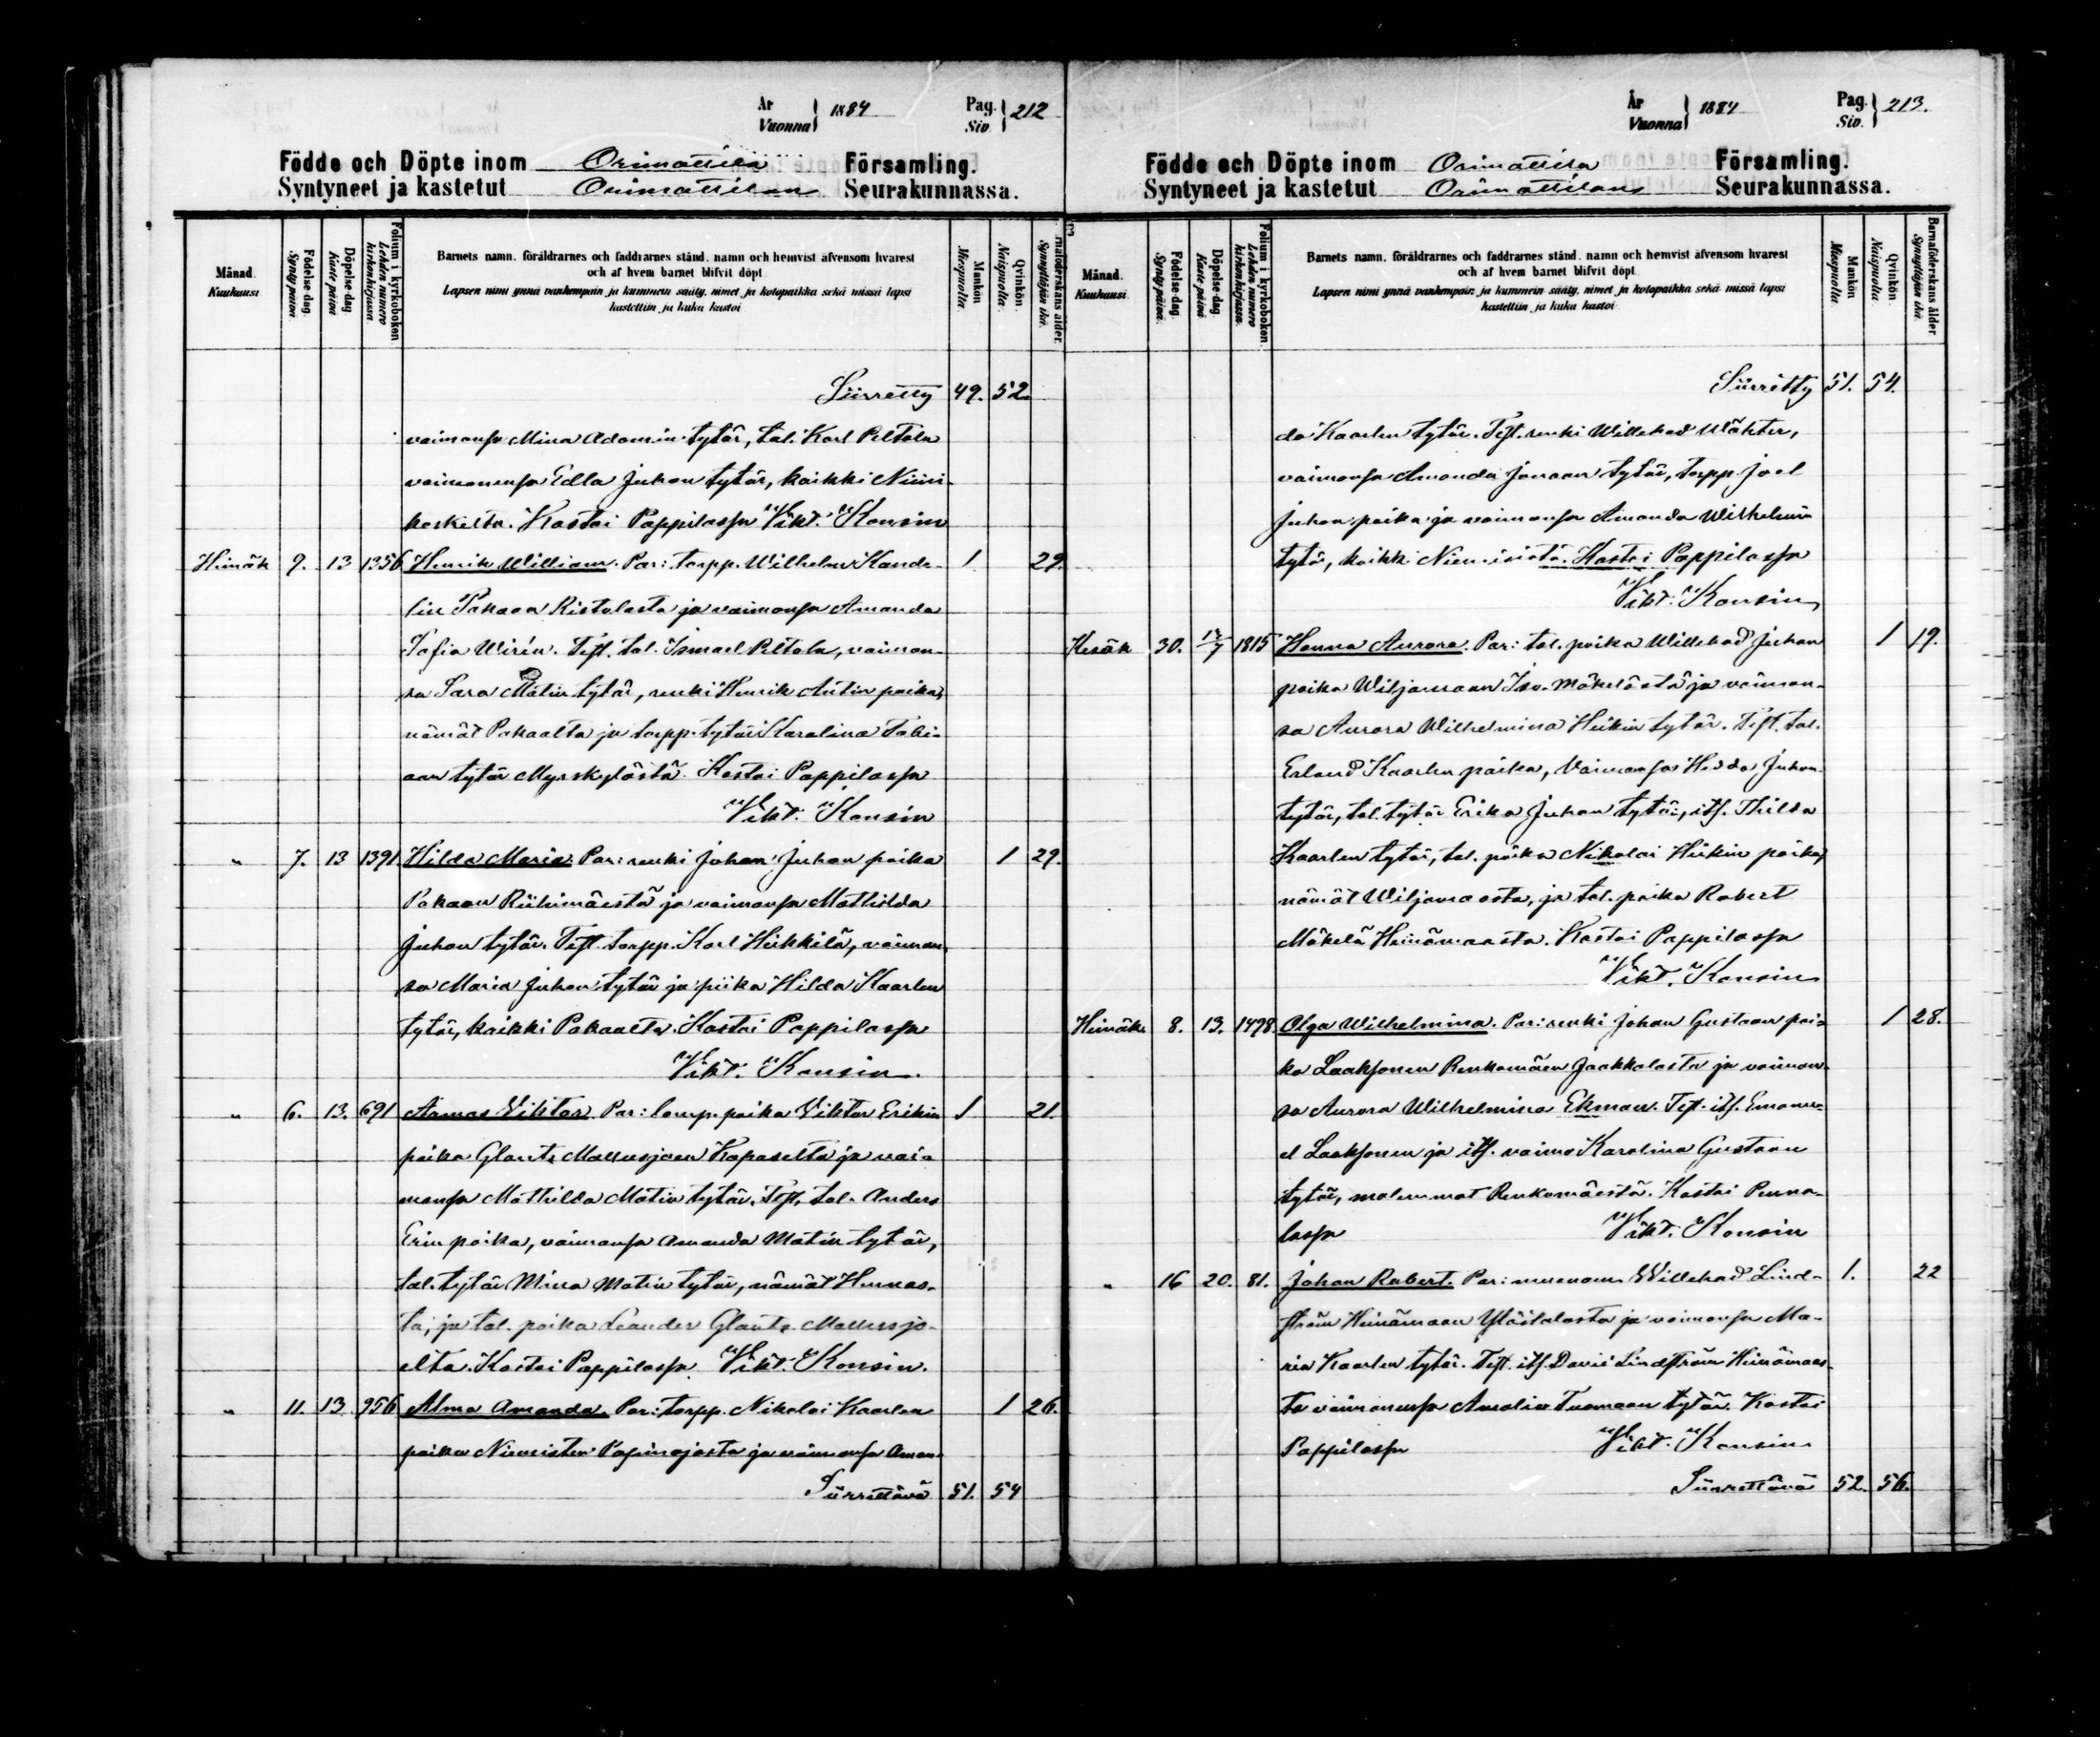 År
Vuonna } 1884
Pag.
Siv. } 212
Födde och Döpte inom Orimattila Församling.
Syntyneet ja kastetut Orimattilan Seurakunnassa.
Månad.
Kuukausi.
Födelse-dag.
Synty-päivä.
Döpelse-dag.
Kaste-päivä
Folium i kyrkoboken
Lehden numero kirkonkirjassa.
Barnets namn, föräldrarnes och faddrarnes stånd, namn och hemvist äfvensom hvarest
och af hvem barnet blifvit döpt.
Lapsen nimi ynnä vanhempain ja kummein sääty, nimet ja kotopaikka sekä missä lapsi
kastettiin ja kuka kastoi
Mankön
Miespuolia.
Qvinkön.
Naispuolia.
Synnyttäjän ikä.
Siirretty 49. 52.
vaimonsa Mina Adamin tytär, tal. Karl Peltola
vaimonensa Edla Juhan tytär, kaikki Niini-
koskelta. Kastoi Pappilassa Vikt. Konsin
Heinäk 9. 13 1356 Henrik William. Par: torpp. Wilhelm Kande- 1 29.
lin Pakaan Ristolasta ja vaimonsa Amanda
Sofia Wirén. Test. tal. Ismael Peltola, vaimon-
sa Sara Matin tytär, renki Henrik Antin poika,
nämät Pakaalta ja torpp. tytär Karolina Fabi-
aan tytär Myrskylästä. Kastoi Pappilassa
Vikt. Konsin
" 7. 13 1391. Hilda Maria. Par: renki Johan Juhan poika 1 29.
Pakaan Riihimäestä ja vaimonsa Mathilda
Juhan tytär. Test. torpp. Karl Heikkilä, vaimon-
sa Maria Juhan tytär ja piika Hilda Kaarlen
tytär, kaikki Pakaalta. Kastoi Pappilassa
Vikt. Konsin.
" 6. 13. 691 Armas Viktor. Par: lamp. poika Viktor Erikin 1 21.
poika Glants Mallusjoen Kapaselta ja vai-
monsa Mathilda Matin tytär. Test. tal. Anders
Erin poika, vaimonsa Amanda Matin tytär,
tal. tytär Mina Matin tytär, nämät Hennas-
ta, ja tal. poika Leander Glants Mallusjo-
elta. Kastoi Pappilassa. Vikt. Konsin.
" 11. 13 956 Alma Amanda. Par: torpp. Nikolai Kaarlen 1 26.
poika Niemisten Papinojasta ja vaimonsa Aman-
Siirrettävä 51. 54
År
Vuonna } 1884
Pag.
Siv. } 213.
Födde och Döpte inom Orimattila Församling.
Syntyneet ja kastetut Orimattilan Seurakunnassa.
Månad.
Kuukausi.
Födelse-dag.
Synty-päivä.
Döpelse-dag
Kaste-päivä
Folium i kyrkoboken.
Lehden numero kirkonkirjassa.
Barnets namn, föräldrarnes och faddrarnes stånd, namn och hemvist äfvensom hvarest
och af hvem barnet blifvit döpt.
Lapsen nimi ynnä vanhempain ja kummein sääty, nimet ja kotopaikka sekä missä lapsi
kastettiin ja kuka kastoi
Mankön
Miespuolia.
Qvinkön.
Naispuolia.
Barnaföderskans ålder.
Synnyttäjän ikä.
Siirretty 51. 54.
da Kaarlen tytär. Test. renki Willehad Wäkter,
vaimonsa Amanda Joonaan tytär, torpp. Joel
Juhan poika ja vaimonsa Amanda Wilhelmin
tytär, kaikki Niemisistä. Kastoi Pappilassa
Vikt. Konsin
Kesäk 30. 13/7 1815 Hanna Aurora. Par: tal. poika Willehad Juhan 1 19.
poika Wiljamaan Iso-Mäkelästä ja vaimon-
sa Aurora Wilhelmina Heikin tytär. Test. tal.
Erland Kaarlen poika, vaimonsa Hedda Juhan
tytär, tal. tytär Erika Juhan tytär, its. Thilda
Kaarlen tytär, tal. poika Nikolai Heikin poika,
nämät Wiljamaasta, ja tal. poika Robert
Mäkelä Heinämaasta. Kastoi Pappilassa
Vikt. Konsin
Heinäk. 8. 13. 1498 Olga Wilhelmina. Par: renki Johan Gustaan poi- 1 28.
ka Laaksonen Renkomäen Jaakkolasta ja vaimon-
sa Aurora Wilhelmina Ekman. Test. its. Emanu-
el Laaksonen ja its. vaimo Karolina Gustaan
tytär, molemmat Renkomäestä. Kastoi Penna-
lassa Vikt. Konsin
" 16 20. 81. Johan Robert. Par: muonam. Willehad Lind- 1. 22
ström Heinämaan Yläitalosta ja vaimonsa Ma-
ria Kaarlen tytär. Test. its. David Lindström Heinämaas-
ta vaimonensa Amalia Tuomaan tytär. Kastoi
Pappilassa Vikt. Konsin
Siirrettävä 52. 56.